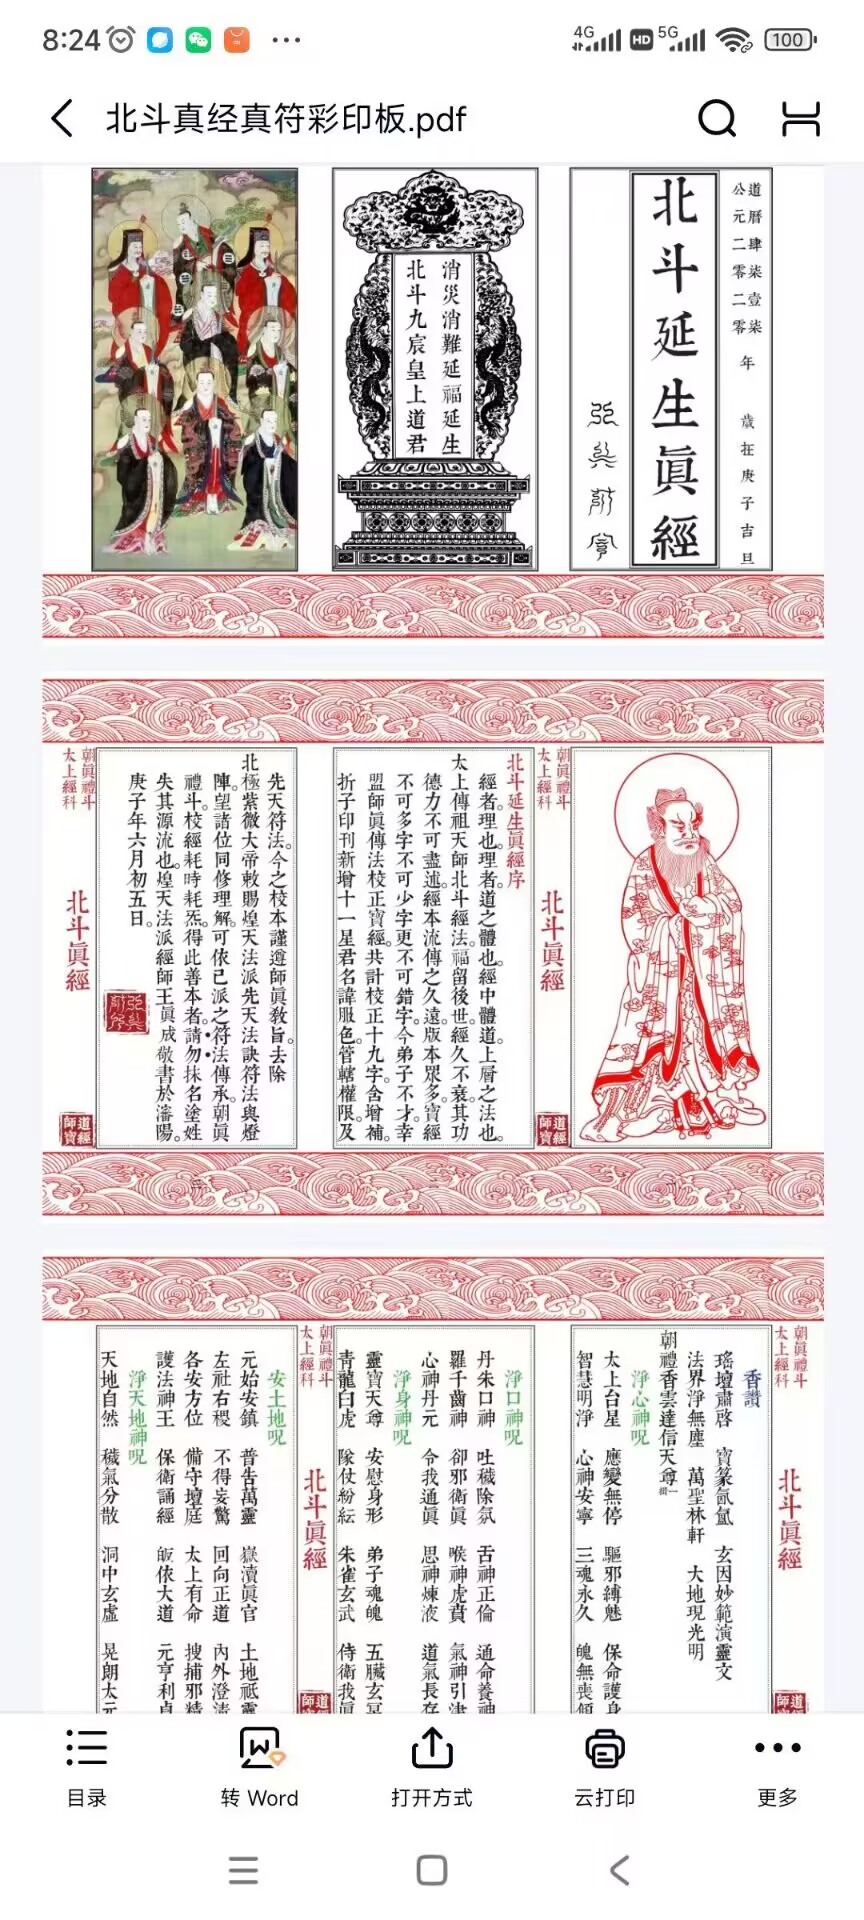 8:24
4G
HD
5G
100
北斗真经真符彩印板.pdf
道曆肆柒壹柒
公元二零二零年 歲在庚子吉旦
北斗延生眞經
消災消難延福延生
北斗九宸皇上道君
朝眞禮斗
太上經科
北斗眞經
道經
師寶
北斗延生眞經序
經者。理也。理者。道之體也。經中體道。上層之法也。
太上傳祖天師北斗經法。福留後世。經久不衰。其功
德力不可盡述。經本流傳之久遠。版本眾多。寶經
不可多字不可少字更不可錯字。今弟子不才。幸
盟師眞傳法校正寶經。共計校正十九字。含增補。
折子印刊新增十一星君名諱服色。管轄權限。及
朝眞禮斗
太上經科
北斗眞經
道經
師寶
先天符法。今之校本謹遵師眞敎旨。去除
北極紫微大帝敕賜煌天法派先天法訣符法與燈
陣。望諸位同修理解。可依己派之符法傳承。朝眞
禮斗。校經耗時耗炁。得此善本者。請勿抹名塗姓
失其源流也。煌天法派經師王眞成敬書於瀋陽。
庚子年六月初五日。
朝眞禮斗
太上經科
北斗眞經
道經
師寶
香讚
瑤壇肅啓 寶篆氤氳 玄因妙範演靈文
法界淨無塵 萬聖林軒 大地現光明
朝禮香雲達信天尊
淨心神呪
太上台星 應變無停 驅邪縛魅 保命護身
智慧明淨 心神安寧 三魂永久 魄無喪傾
朝眞禮斗
太上經科
北斗眞經
淨口神呪
丹朱口神 吐穢除氛 舌神正倫 通命養神
羅千齒神 卻邪衛眞 喉神虎賁 氣神引津
心神丹元 令我通眞 思神煉液 道氣長存
淨身神呪
靈寶天尊 安慰身形 弟子魂魄 五臟玄冥
青龍白虎 隊仗紛紜 朱雀玄武 侍衛我眞
朝眞禮斗
太上經科
北斗眞經
安土地呪
元始安鎮 普告萬靈 嶽瀆眞官 土地祇靈
左社右稷 不得妄驚 回向正道 內外澄清
各安方位 備守壇庭 太上有命 搜捕邪精
護法神王 保衛誦經 皈依大道 元亨利貞
淨天地神呪
天地自然 穢氣分散 洞中玄虛 晃朗太元
目录
转 Word
打开方式
云打印
更多